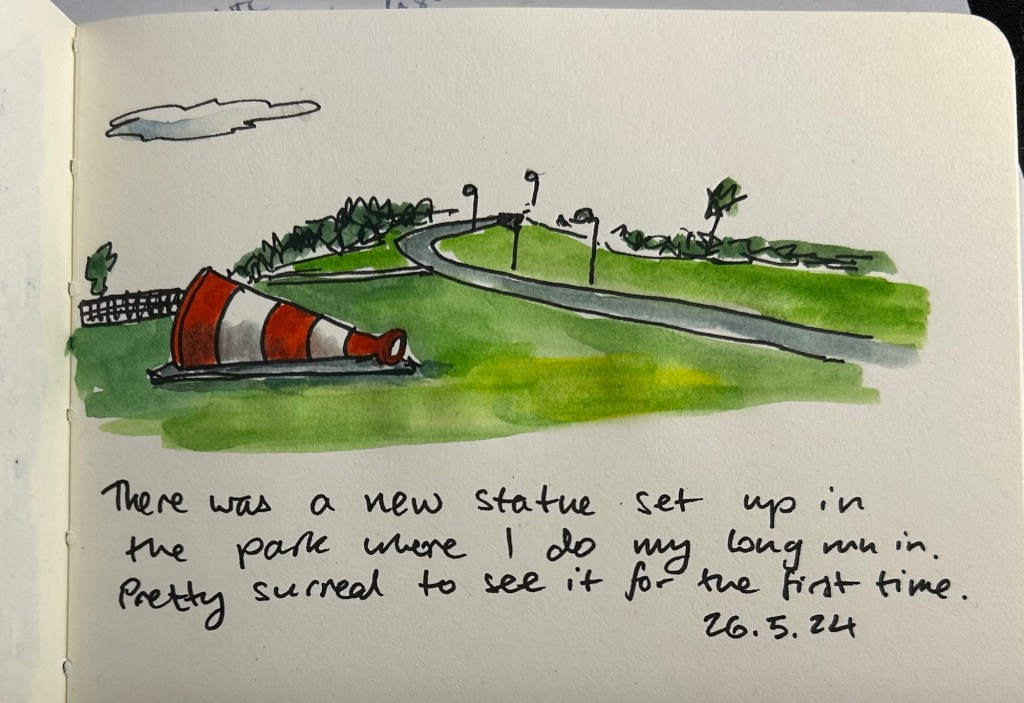 There was a new statue set up in
the park where I do my long run in.
Pretty surreal to see it for the first time.
26.5.24